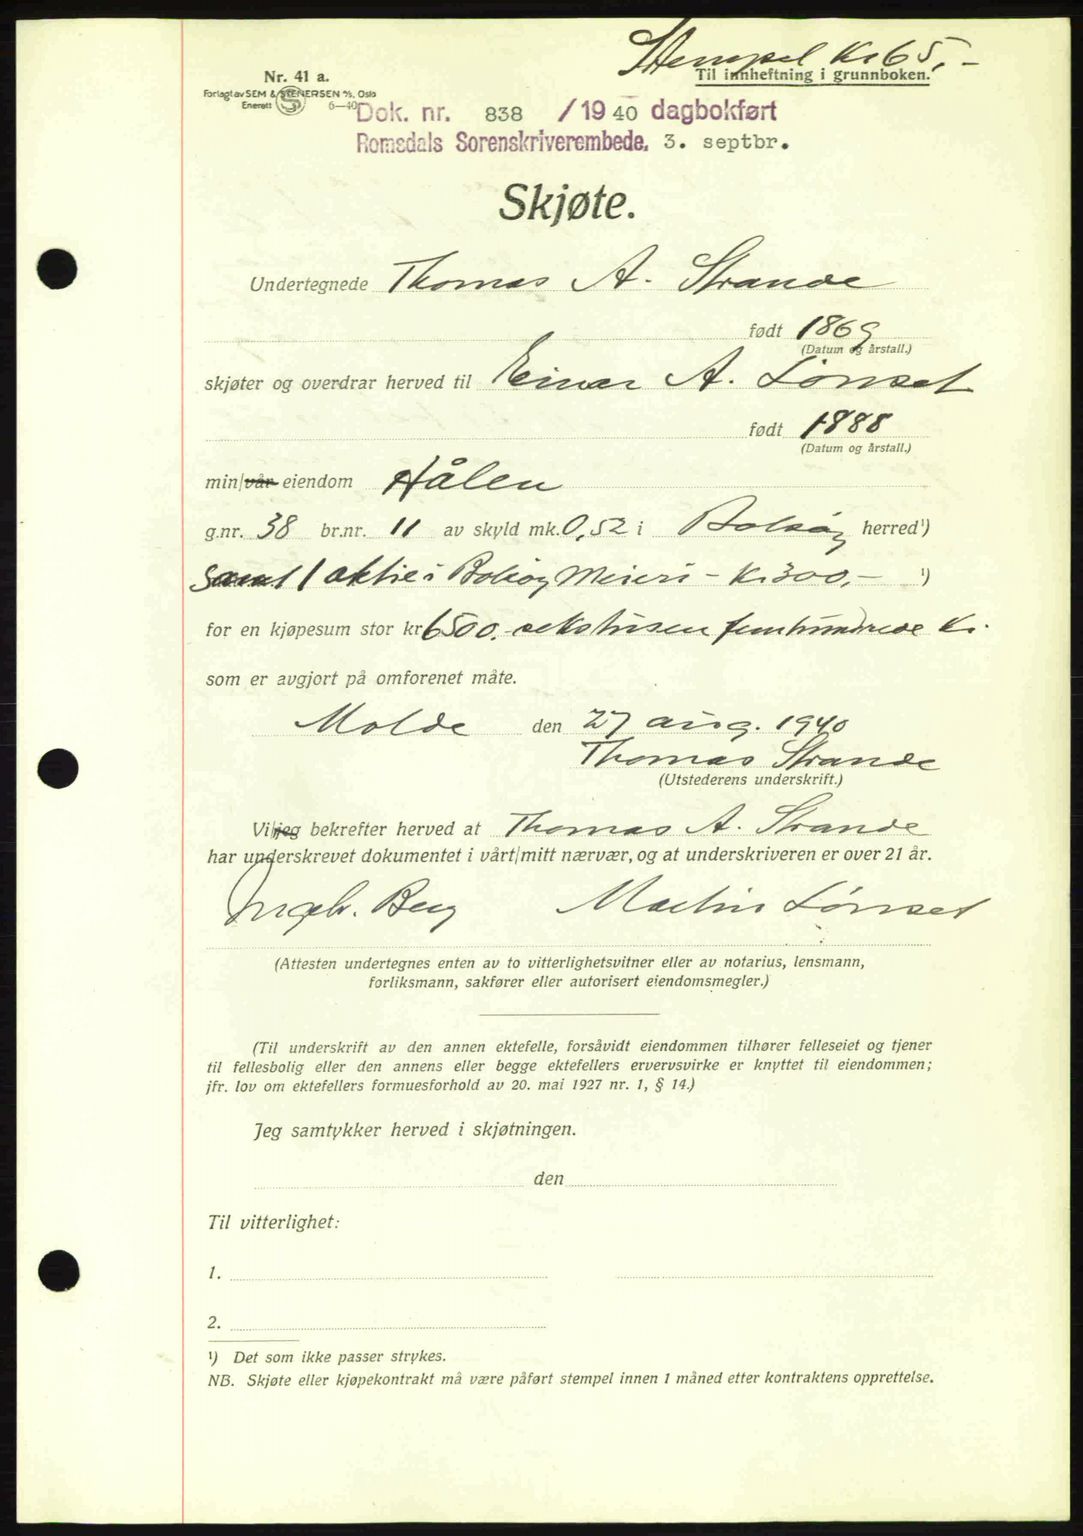 Stempel Kr 65,-
Nr. 41 a.
Til innheftning i grunnboken.
Forlagt av SEM & STENERSEN A/S, Oslo
Enerett S 6—40
Dok. nr. 838 /1940 dagbokført
Romsdals Sorenskriverembede. 3. septbr.
Skjøte.
Undertegnede Thomas A. Strande
født 1869
(Datum og årstall.)
skjøter og overdrar herved til Einar A. Lønset
født 1888
(Datum og årstall.)
min/vår eiendom Hålen
g.nr. 38 br.nr. 11 av skyld mk. 0,52 i Bolsøy herred¹)
samt 1 aktie i Bolsøy Meieri - Kr 300,- ¹)
for en kjøpesum stor kr 6500. sekstusen femhundrede Kr.
som er avgjort på omforenet måte.
Molde den 27 aug. 1940
Thomas Strande
(Utstederens underskrift.)
Vi/jeg bekrefter herved at Thomas A. Strande
har underskrevet dokumentet i vårt/mitt nærvær, og at underskriveren er over 21 år.
Ingebr. Berg Martin Lønset
(Attesten undertegnes enten av to vitterlighetsvitner eller av notarius, lensmann,
forliksmann, sakfører eller autorisert eiendomsmegler.)
(Til underskrift av den annen ektefelle, forsåvidt eiendommen tilhører felleseiet og tjener
til fellesbolig eller den annens eller begge ektefellers ervervsvirke er knyttet til eiendommen;
jfr. lov om ektefellers formuesforhold av 20. mai 1927 nr. 1, § 14.)
Jeg samtykker herved i skjøtningen.
den
Til vitterlighet:
1.
2.
¹) Det som ikke passer strykes.
NB. Skjøte eller kjøpekontrakt må være påført stempel innen 1 måned etter kontraktens opprettelse.